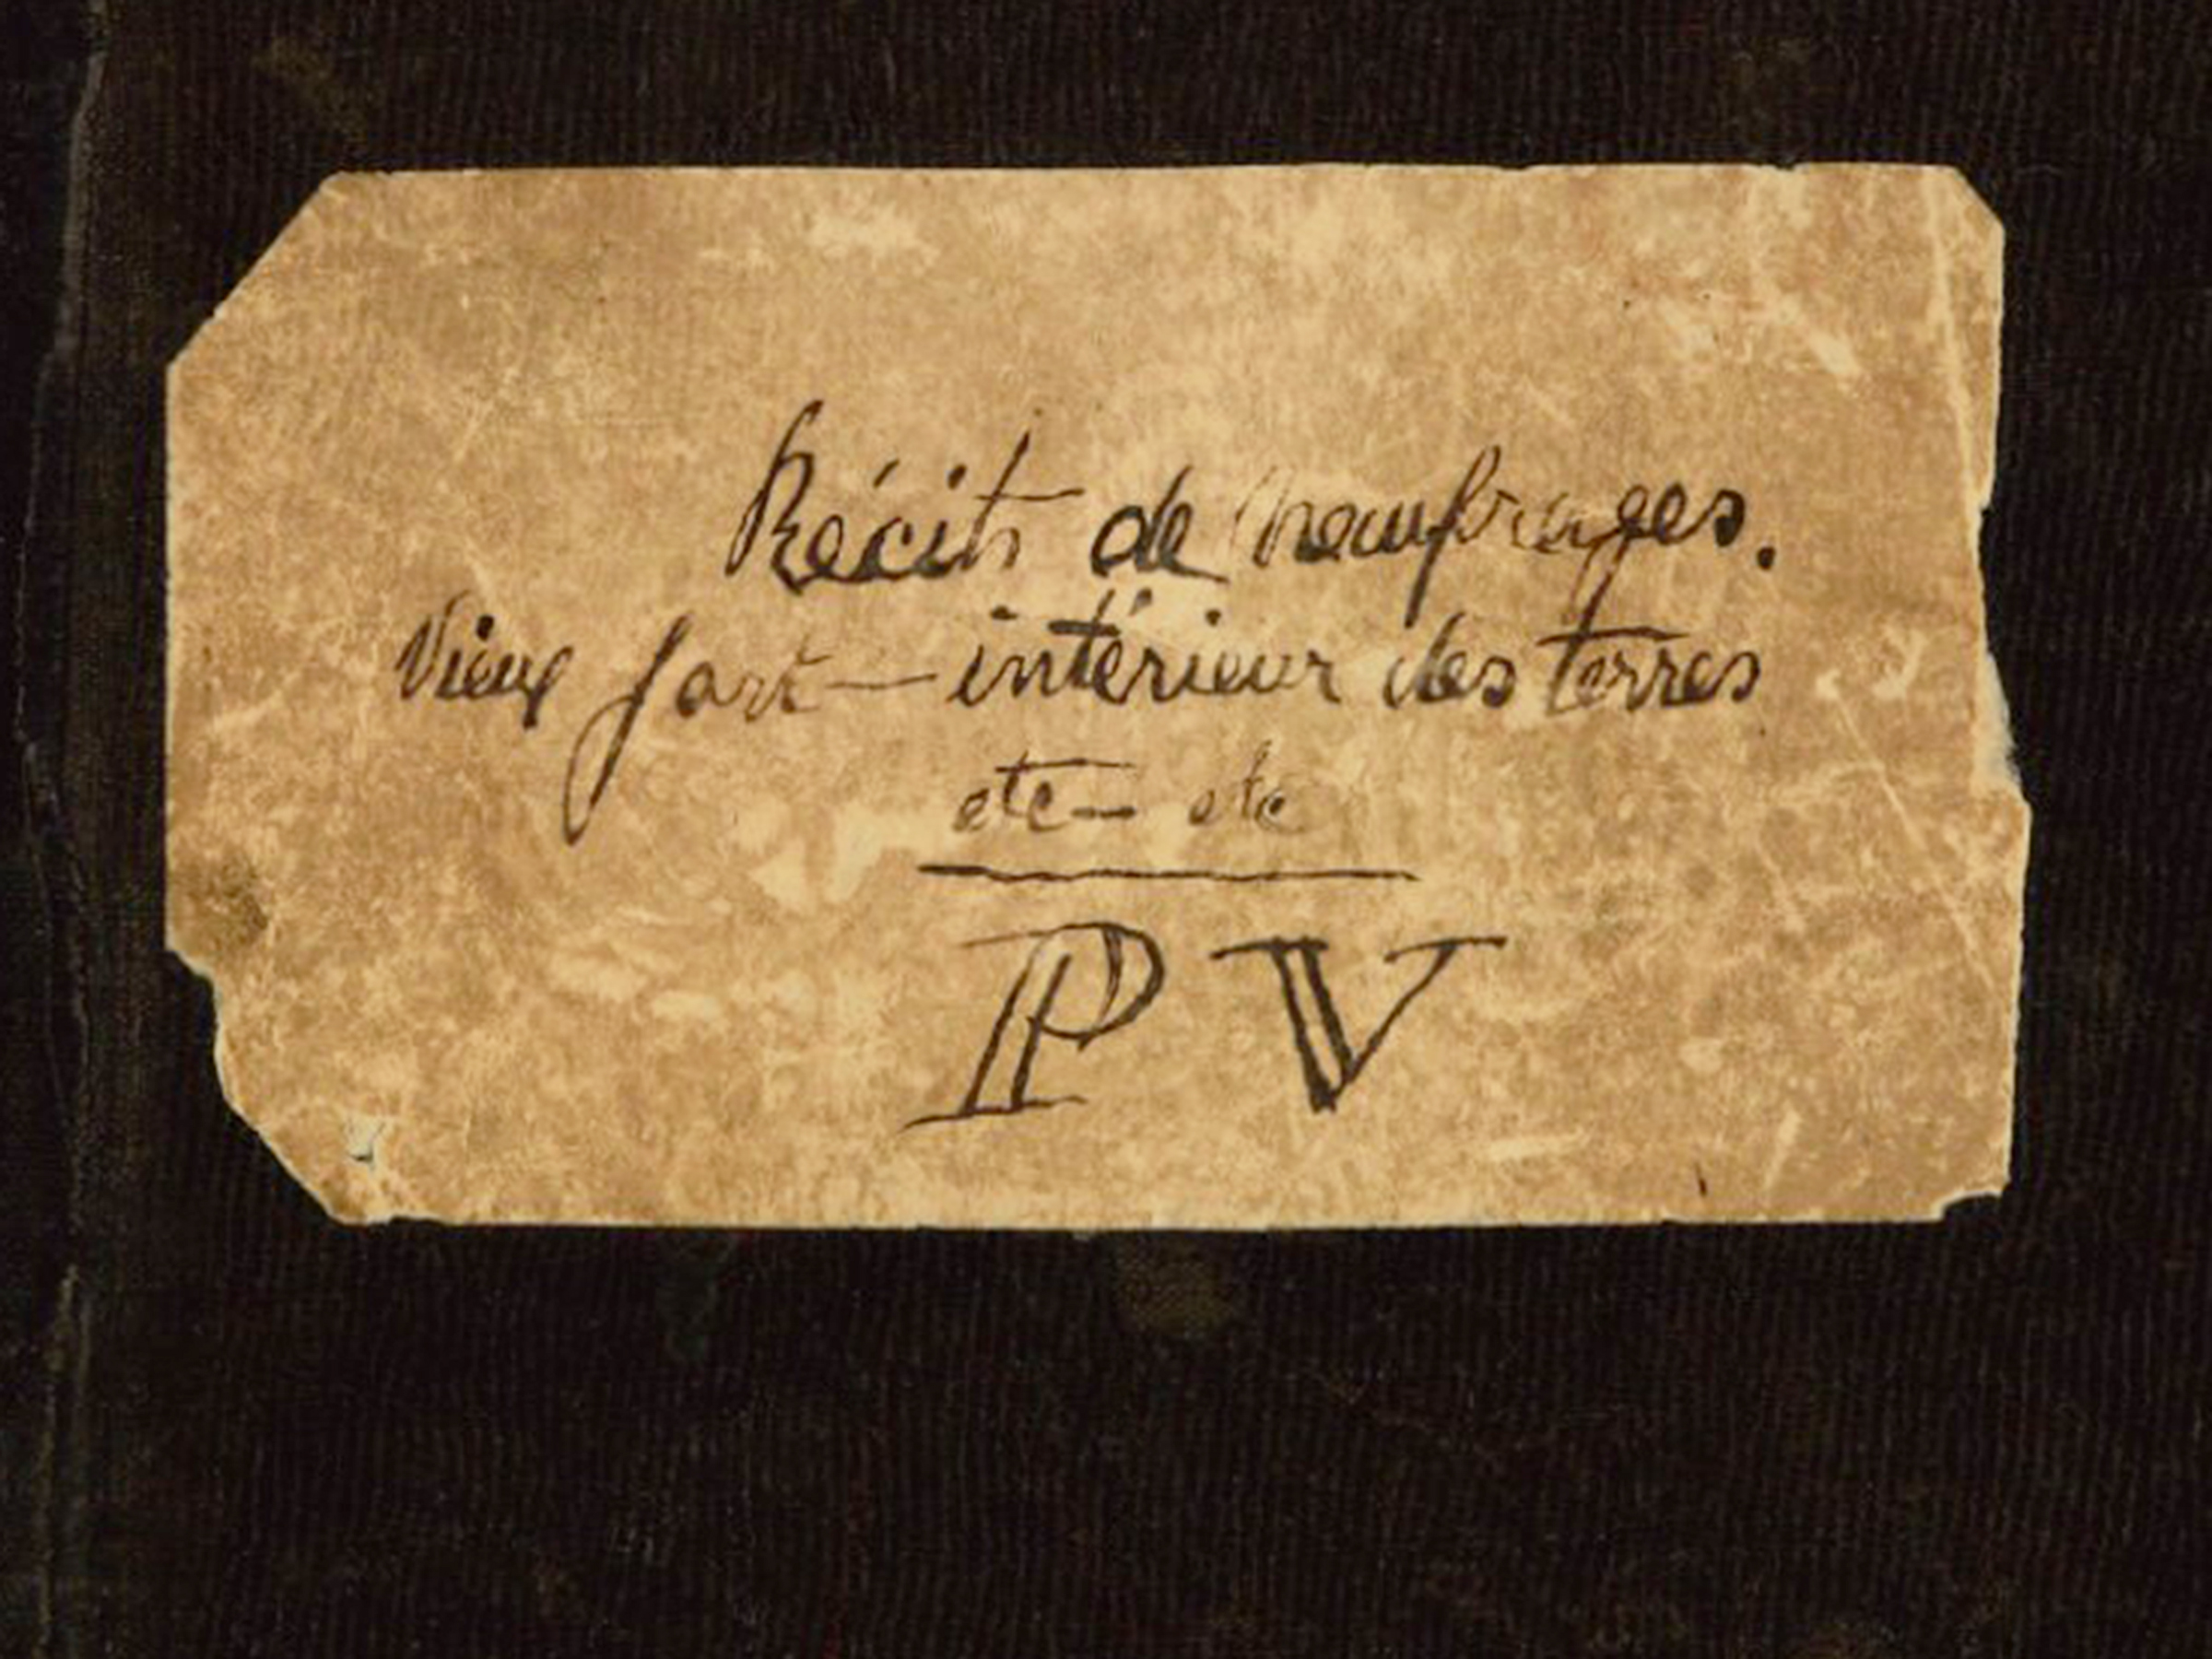 Récits de naufrages.
Vieux fort — intérieur des terres
etc — etc
P V